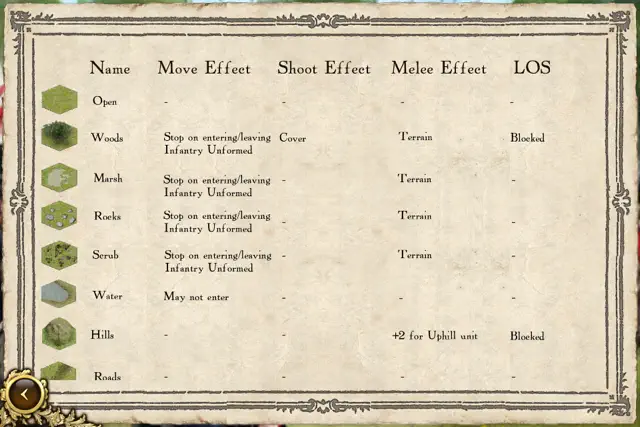 Name Move Effect Shoot Effect Melee Effect LOS
Open - - - -
Woods Stop on entering/leaving Cover Terrain Blocked
Infantry Unformed
Marsh Stop on entering/leaving - Terrain -
Infantry Unformed
Rocks Stop on entering/leaving - Terrain -
Infantry Unformed
Scrub Stop on entering/leaving - Terrain -
Infantry Unformed
Water May not enter - - -
Hills - - +2 for Uphill unit Blocked
Roads - - - -